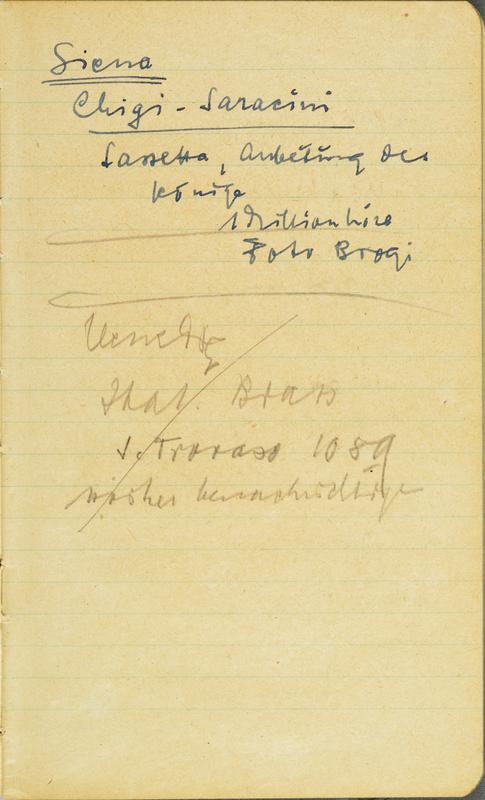 Siena
Chigi-Saracini
Sassetta, Anbetung der
Könige
1 Million Lire
Foto Brogi
Venedig
Ital. Brass
S. Trovaso 1089
vorher benachrichtigen